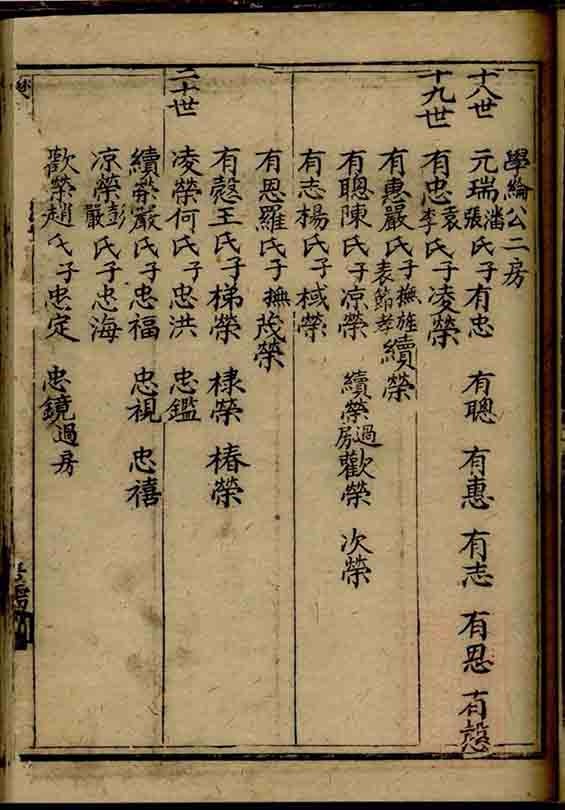 學綸公二房
十八世 元瑞潘張氏子有忠 有聰 有惠 有志 有恩 有愨
十九世 有忠袁李氏子凌榮
有惠嚴氏子撫旌表節孝續榮
有聰陳氏子凉榮 續榮過房歡榮 次榮
有志楊氏子棫榮
有恩羅氏子撫茂榮
有愨王氏子梯榮 棣榮 椿榮
二十世 凌榮何氏子忠洪 忠鑑
續榮嚴氏子忠福 忠視 忠禧
凉榮彭嚴氏子忠海
歡榮趙氏子忠定 忠鏡過房